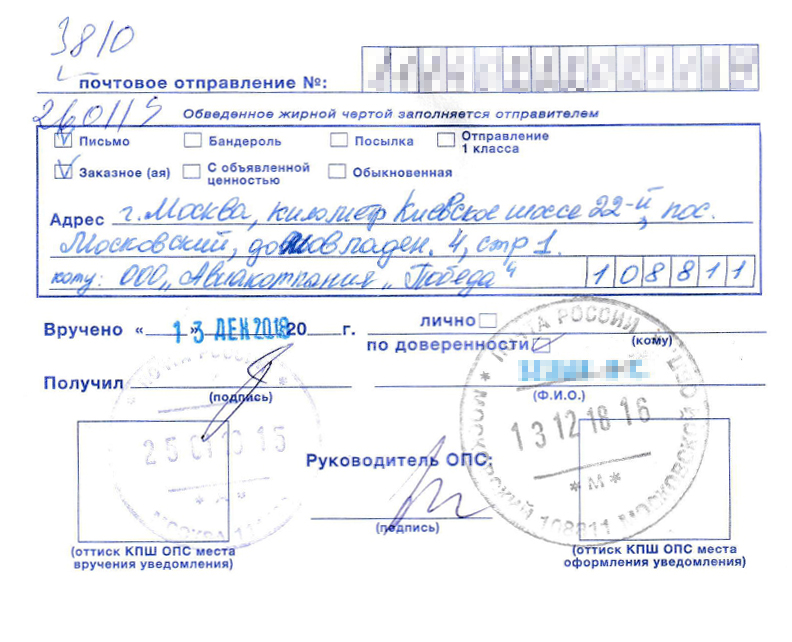 3810
почтовое отправление №:
260115
Обведенное жирной чертой заполняется отправителем
Письмо Бандероль Посылка Отправление 1 класса
Заказное (ая) С объявленной ценностью Обыкновенная
Адрес г. Москва, километр Киевское шоссе 22-й, пос.
Московский, домовладен. 4, стр 1.
кому: ООО „Авиакомпания „Победа“ 108811
Вручено « 13 ДЕК 2018 » 20 г. лично
по доверенности (кому)
Получил
(подпись) (Ф.И.О.)
ПОЧТА РОССИИ
13 12 18 16
* М *
МОСКОВСКИЙ 108811 МОСКОВСКОЙ
ПОЧТА РОССИИ
* А *
МОСКВА
Руководитель ОПС:
(подпись)
(оттиск КПШ ОПС места вручения уведомления)
(оттиск КПШ ОПС места оформления уведомления)